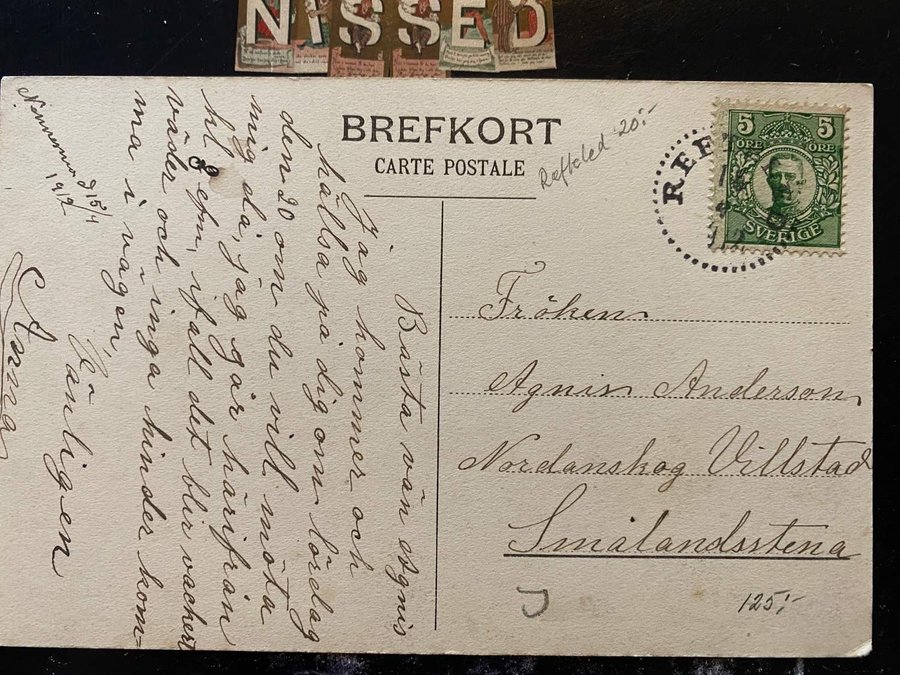 NISSED
BREFKORT
CARTE POSTALE
Refteled 20:-
5 5
ÖRE ÖRE
SVERIGE
REF
12
15/4
1912
Bästa vän Agnis
Jag kommer och
hälsa på dig om lördag
den 20 om du vill möta
mig då, jag går härifrån
kl 8 efm, ifall det blir vackert
väder och inga hinder kom-
ma i vägen,
Vänligen
Anna
Fröken
Agnis Anderson
Nordanskog Villstad
Smålandsstena
125:-